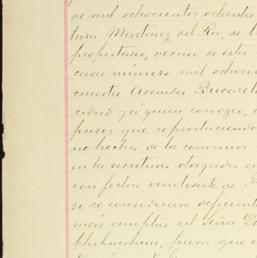 se mil ochocientos ochenta
tura Martinez del Rio, se
propietario, vecino de esta
casa número mil ochoci
cuarta Avenida Bucareli
ciudad y á quien conozco,
puso: que reproduciendo
no hecha de los convenios
en la escritura otorgada
con fecha veintisiete de
si se considerare deficiente
más amplia al Señor
Chihuahua, para que